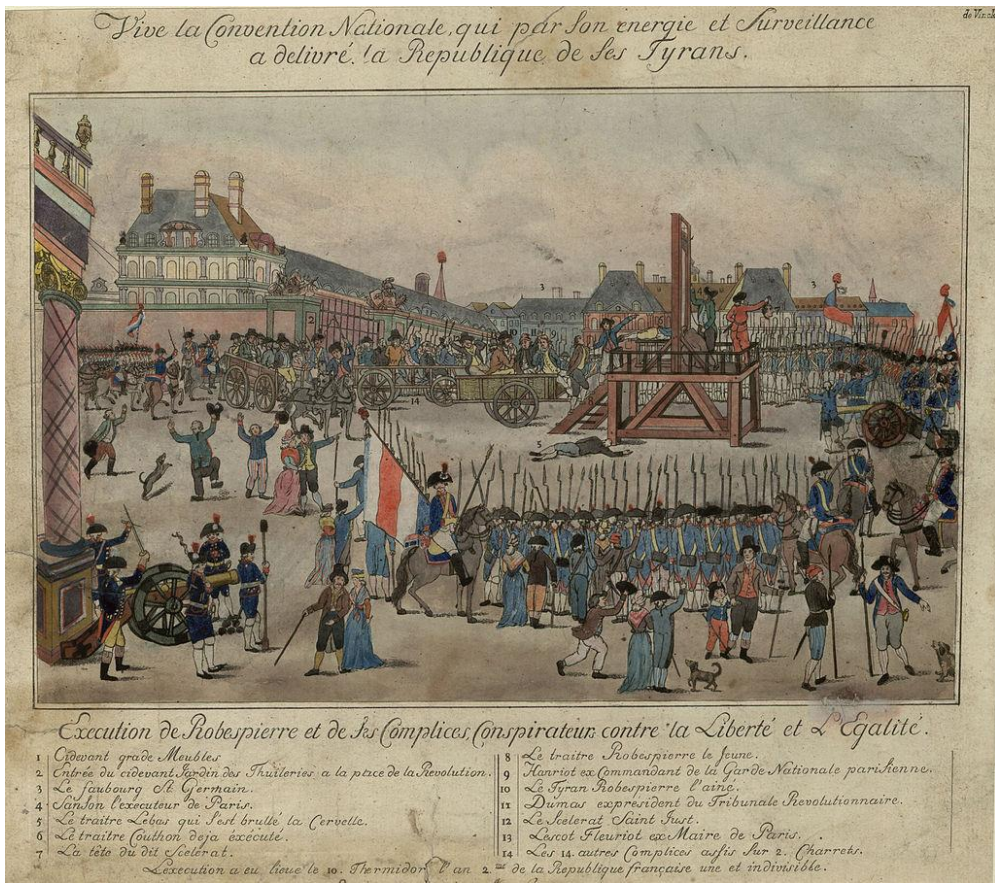 de Vinck
Vive la Convention Nationale, qui par son energie et Surveillance
a delivré la Republique de ses Tyrans.
2
3
3
10
9
14
5
Execution de Robespierre et de ses Complices Conspirateurs contre la Liberté et L'Egalité.
1 Cidevant grade Meubles
2 Entrée du cidevant Jardin des Thuileries a la place de la Revolution.
3 Le faubourg St. Germain.
4 Sanson l'executeur de Paris.
5 Le traitre Lebas qui s'est brullé la Cervelle.
6 Le traitre Couthon deja éxécuté.
7 La tête du dit Scelerat.
8 Le traitre Robespierre le Jeune.
9 Hanriot ex Commandant de la Garde Nationale parisienne.
10 Le Tyran Robespierre l'ainé.
11 Dumas exprésident du Tribunale Revolutionnaire.
12 Le Scelerat Saint Just.
13 Lescot Fleuriot ex Maire de Paris.
14 Les 14. autres Complices assis sur 2. Charrets.
L'execution a eu lieue le 10. Thermidor l'an 2.me de la Republique française une et indivisible.